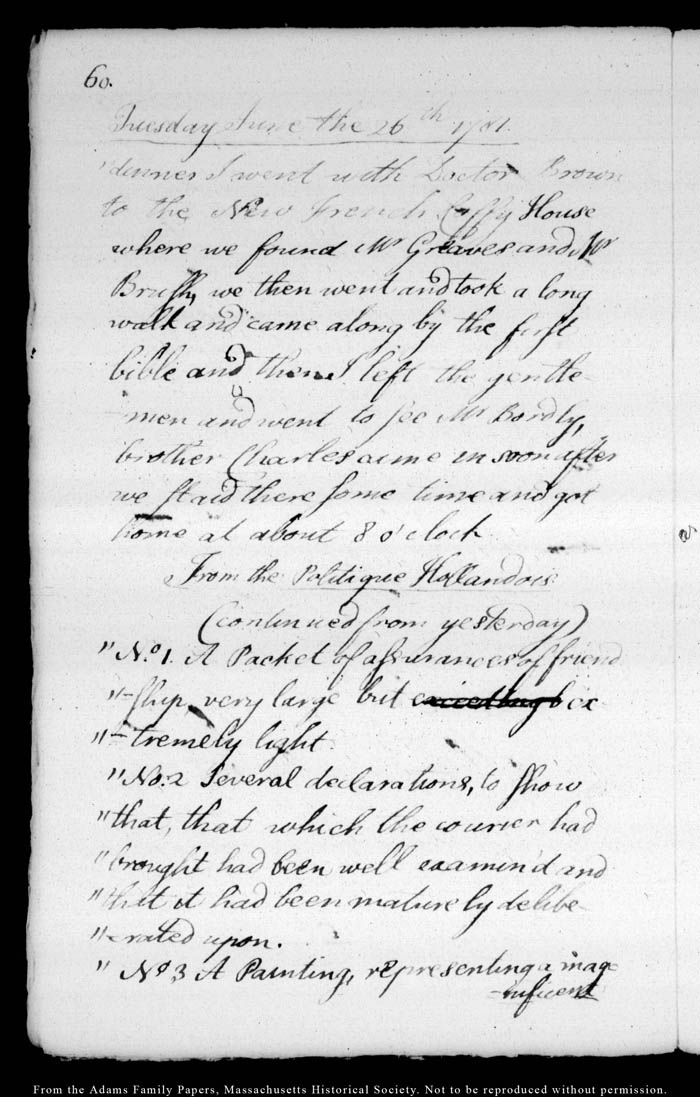 60.
Tuesday June the 26th 1781.
"dinner I went with Doctor Brown
to the New French Coffy House
where we found Mr Greaves and Mr
Brush, we then went and took a long
walk and came along by the first
bible and then I left the gentle-
men and went to see Mr Bordly,
brother Charles came in soon after
we staid there some time and got
home at about 8 o'clock
From the Politique Hollandois
(continued from yesterday)
"No. 1. A Packet of assurances of friend
"-ship, very large but ex-
"-tremely light
"No. 2 Several declarations, to show
"that, that which the courier had
"brought had been well examin'd and
"that it had been maturely delibe-
"-rated upon.
"No 3 A Painting, representing a mag-
-nificent
From the Adams Family Papers, Massachusetts Historical Society. Not to be reproduced without permission.